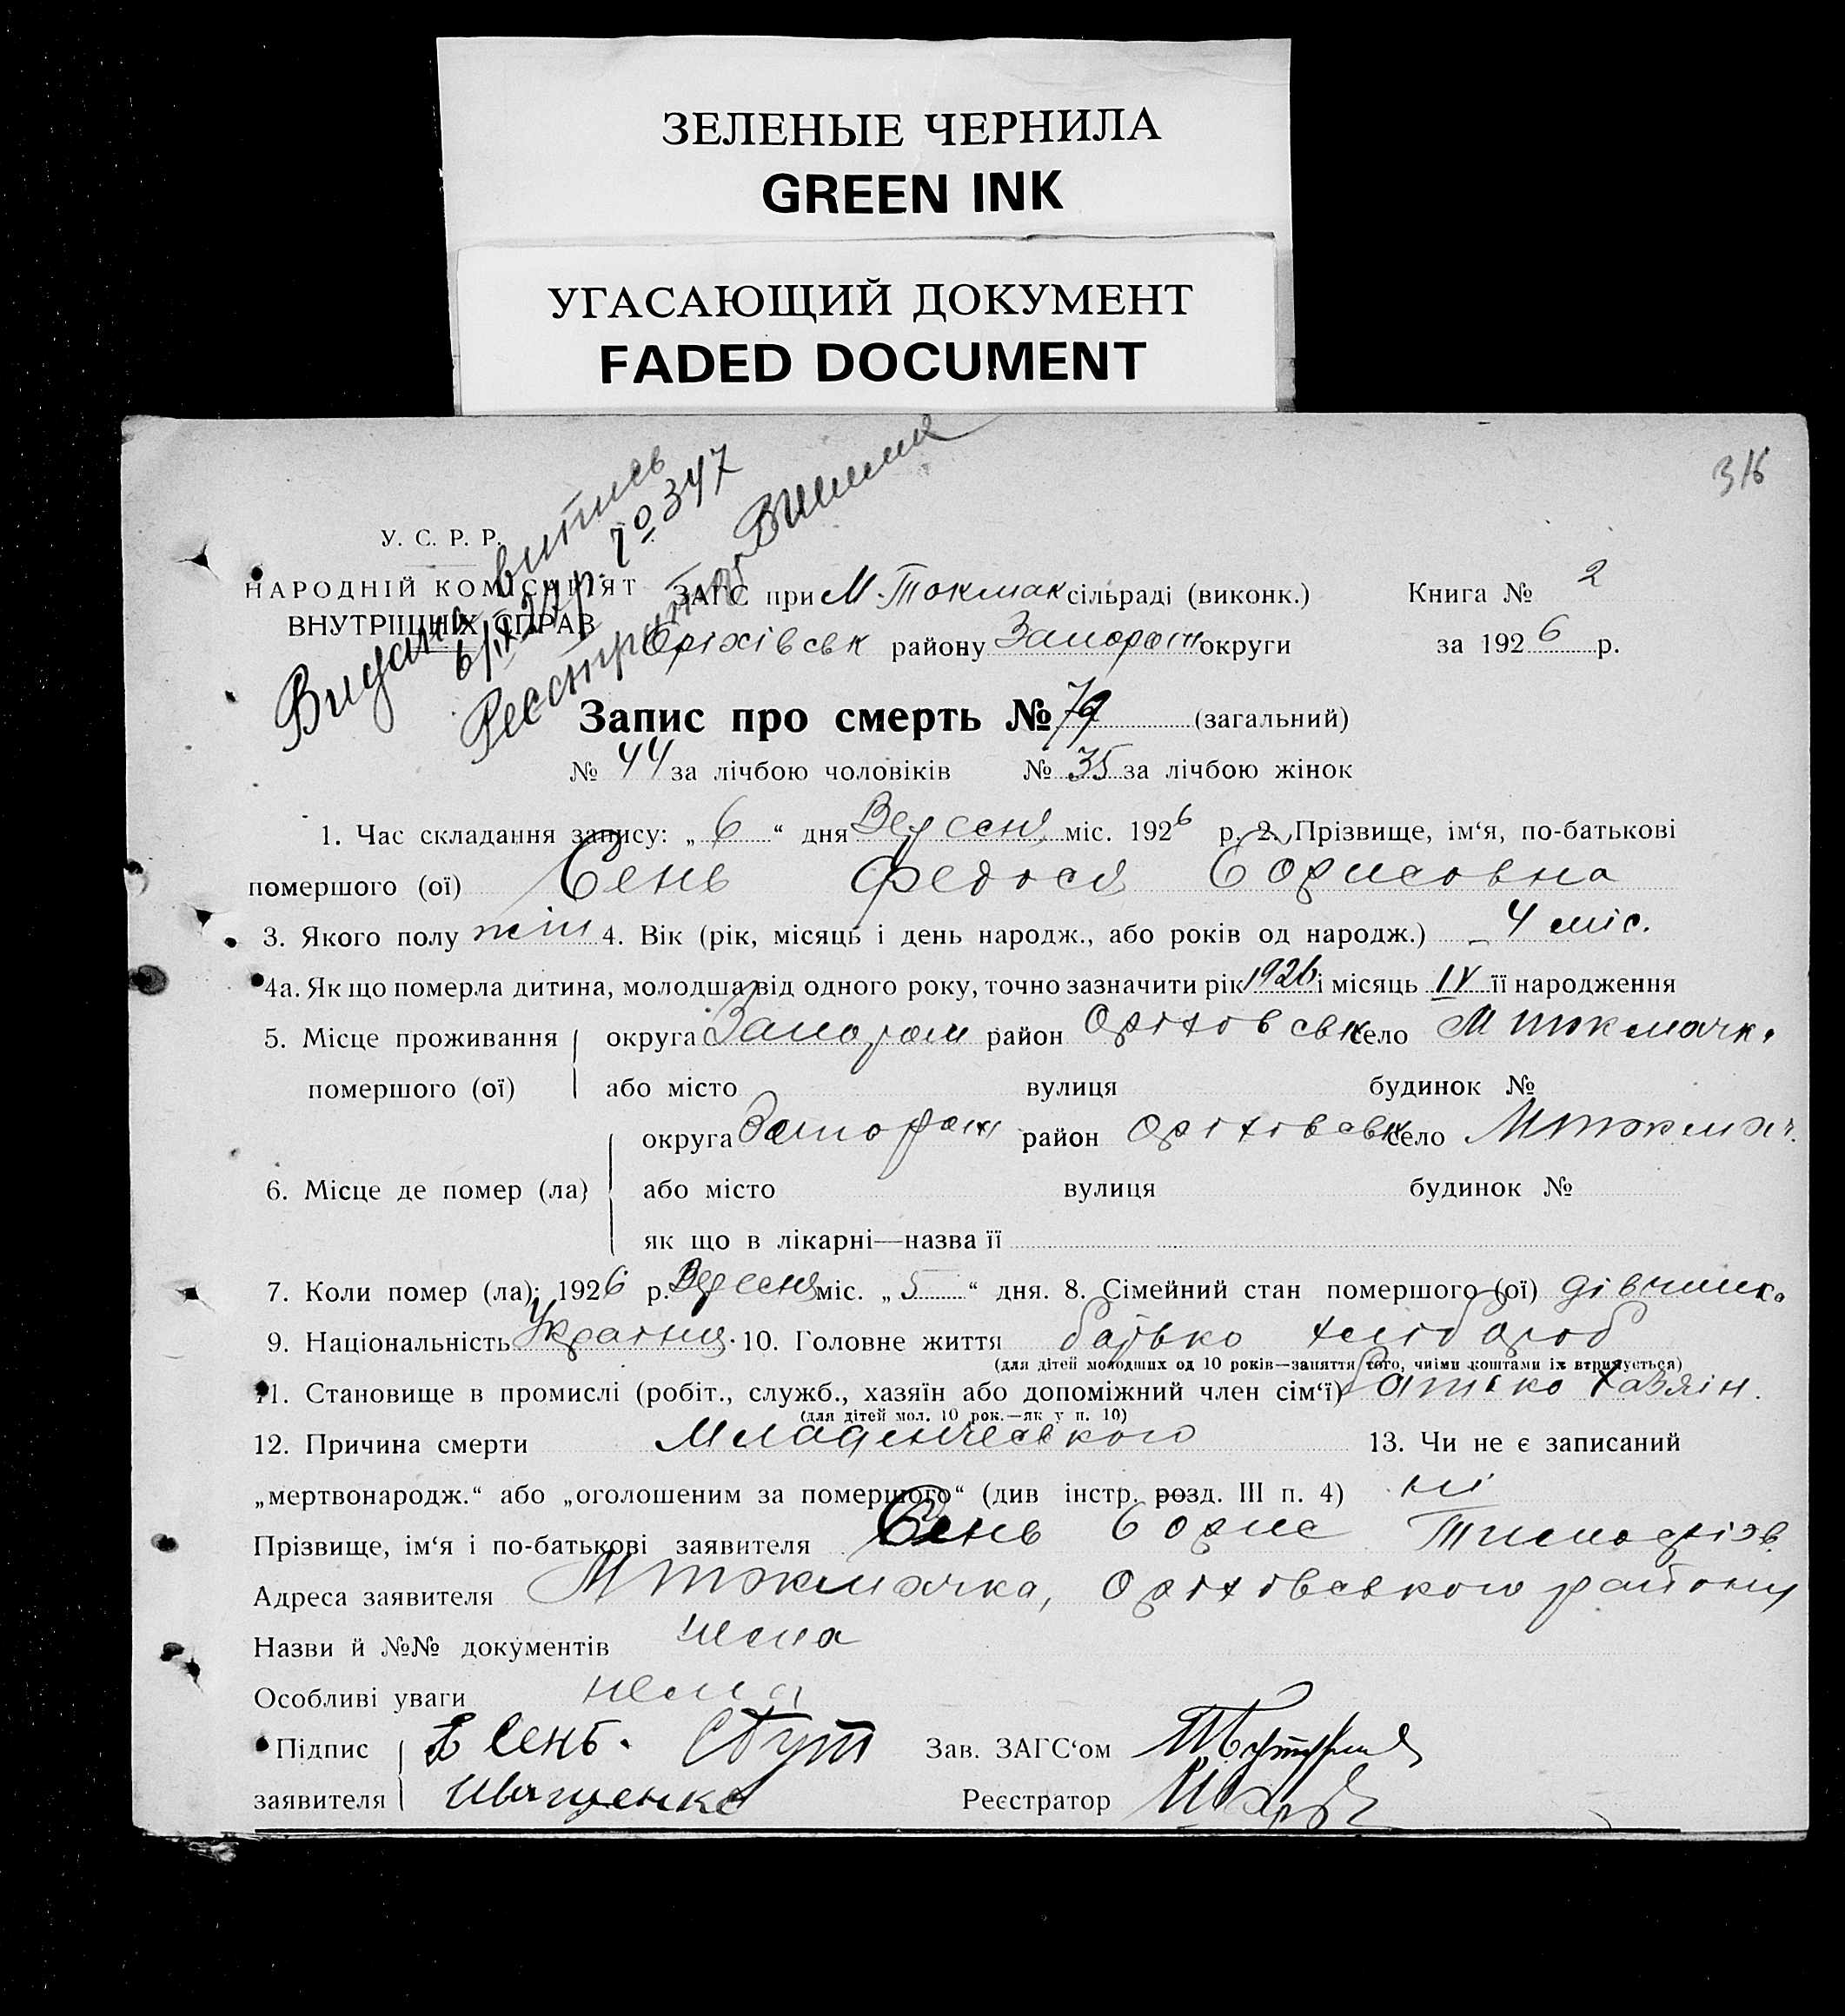 ЗЕЛЕНЫЕ ЧЕРНИЛА
GREEN INK
УГАСАЮЩИЙ ДОКУМЕНТ
FADED DOCUMENT
316
Видана витпись
6/IX-27р. № 347
Реєстратор
У. С. Р. Р.
НАРОДНІЙ КОМІСАРІЯТ
ВНУТРІШНІХ СПРАВ
ЗАГС при М-Токмак сільраді (виконк.) Книга № 2
Оріхівськ району Запоріж округи за 1926 р.
Запис про смерть № 79 (загальний)
№ 44 за лічбою чоловіків № 35 за лічбою жінок
1. Час складання запису: „6“ дня Вересня міс. 1926 р. 2. Прізвище, ім‘я, по-батькові
помершого (ої) Сень Федося Борисовна
3. Якого полу жін 4. Вік (рік, місяць і день народж., або років од народж.) 4 міс.
4а. Як що померла дитина, молодша від одного року, точно зазначити рік 1926 і місяць IV її народження
5. Місце проживання округа Запорож район Оріховськ село М токмачк.
помершого (ої) або місто вулиця будинок №
округа Запорож район Оріховськ село Мтокмач.
6. Місце де помер (ла) або місто вулиця будинок №
як що в лікарні—назва її
7. Коли помер (ла): 1926 р. Вересня міс. „5“ дня. 8. Сімейний стан помершого (ої) дівчинк.
9. Національність Україн. 10. Головне життя батько хлібороб
(для дітей молодших од 10 років—заняття того, чиїми коштами їх втримується)
11. Становище в промислі (робіт., служб., хазяїн або допоміжний член сім‘ї) батько хазяін.
(для дітей мол. 10 рок.—як у п. 10)
12. Причина смерти Младенческого 13. Чи не є записаний
„мертвонародж.“ або „оголошеним за помершого“ (див інстр. розд. III п. 4) ні
Прізвище, ім‘я і по-батькові заявителя Сень Борис Тимофіэв.
Адреса заявителя М токмачка, Оріховського району
Назви й №№ документів нема
Особливі уваги нема
Підпис Б Сень. Зав. ЗАГС‘ом
заявителя Іващенко Реєстратор